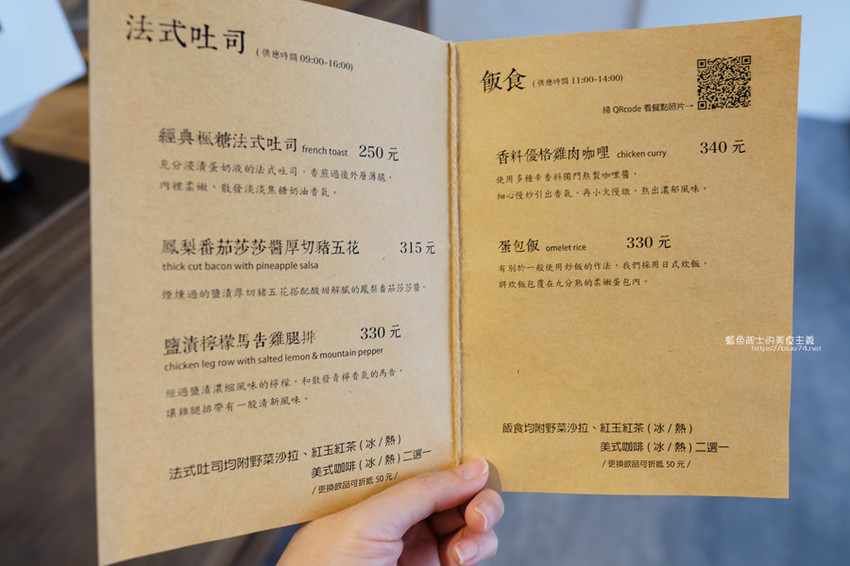 法式吐司 (供應時間 09:00-16:00)
經典楓糖法式吐司 french toast 250 元
充分浸漬蛋奶液的法式吐司，香煎過後外層薄脆，
內裡柔嫩，散發淡淡焦糖奶油香氣。
鳳梨番茄莎莎醬厚切豬五花 315 元
thick cut bacon with pineapple salsa
煙燻過的鹽漬厚切豬五花搭配酸甜解膩的鳳梨番茄莎莎醬。
鹽漬檸檬馬告雞腿排 330 元
chicken leg row with salted lemon & mountain pepper
經過鹽漬濃縮風味的檸檬，和散發青檸香氣的馬告，
讓雞腿排帶有一股清新風味。
法式吐司均附野菜沙拉、紅玉紅茶 ( 冰 / 熱 )
美式咖啡 ( 冰 / 熱 ) 二選一
/ 更換飲品可折抵 50 元 /
飯食 (供應時間 11:00-14:00)
掃 QRcode 看餐點照片→
香料優格雞肉咖哩 chicken curry 340 元
使用多種辛香料獨門熬製咖哩醬，
細心慢炒引出香氣、再小火慢燉，熬出濃郁風味。
蛋包飯 omelet rice 330 元
有別於一般使用炒飯的作法，我們採用日式炊飯，
將炊飯包覆在九分熟的柔嫩蛋包內。
飯食均附野菜沙拉、紅玉紅茶 ( 冰 / 熱 )
美式咖啡 ( 冰 / 熱 ) 二選一
/ 更換飲品可折抵 50 元 /
藍色起士的美食主義
https://blue74.net